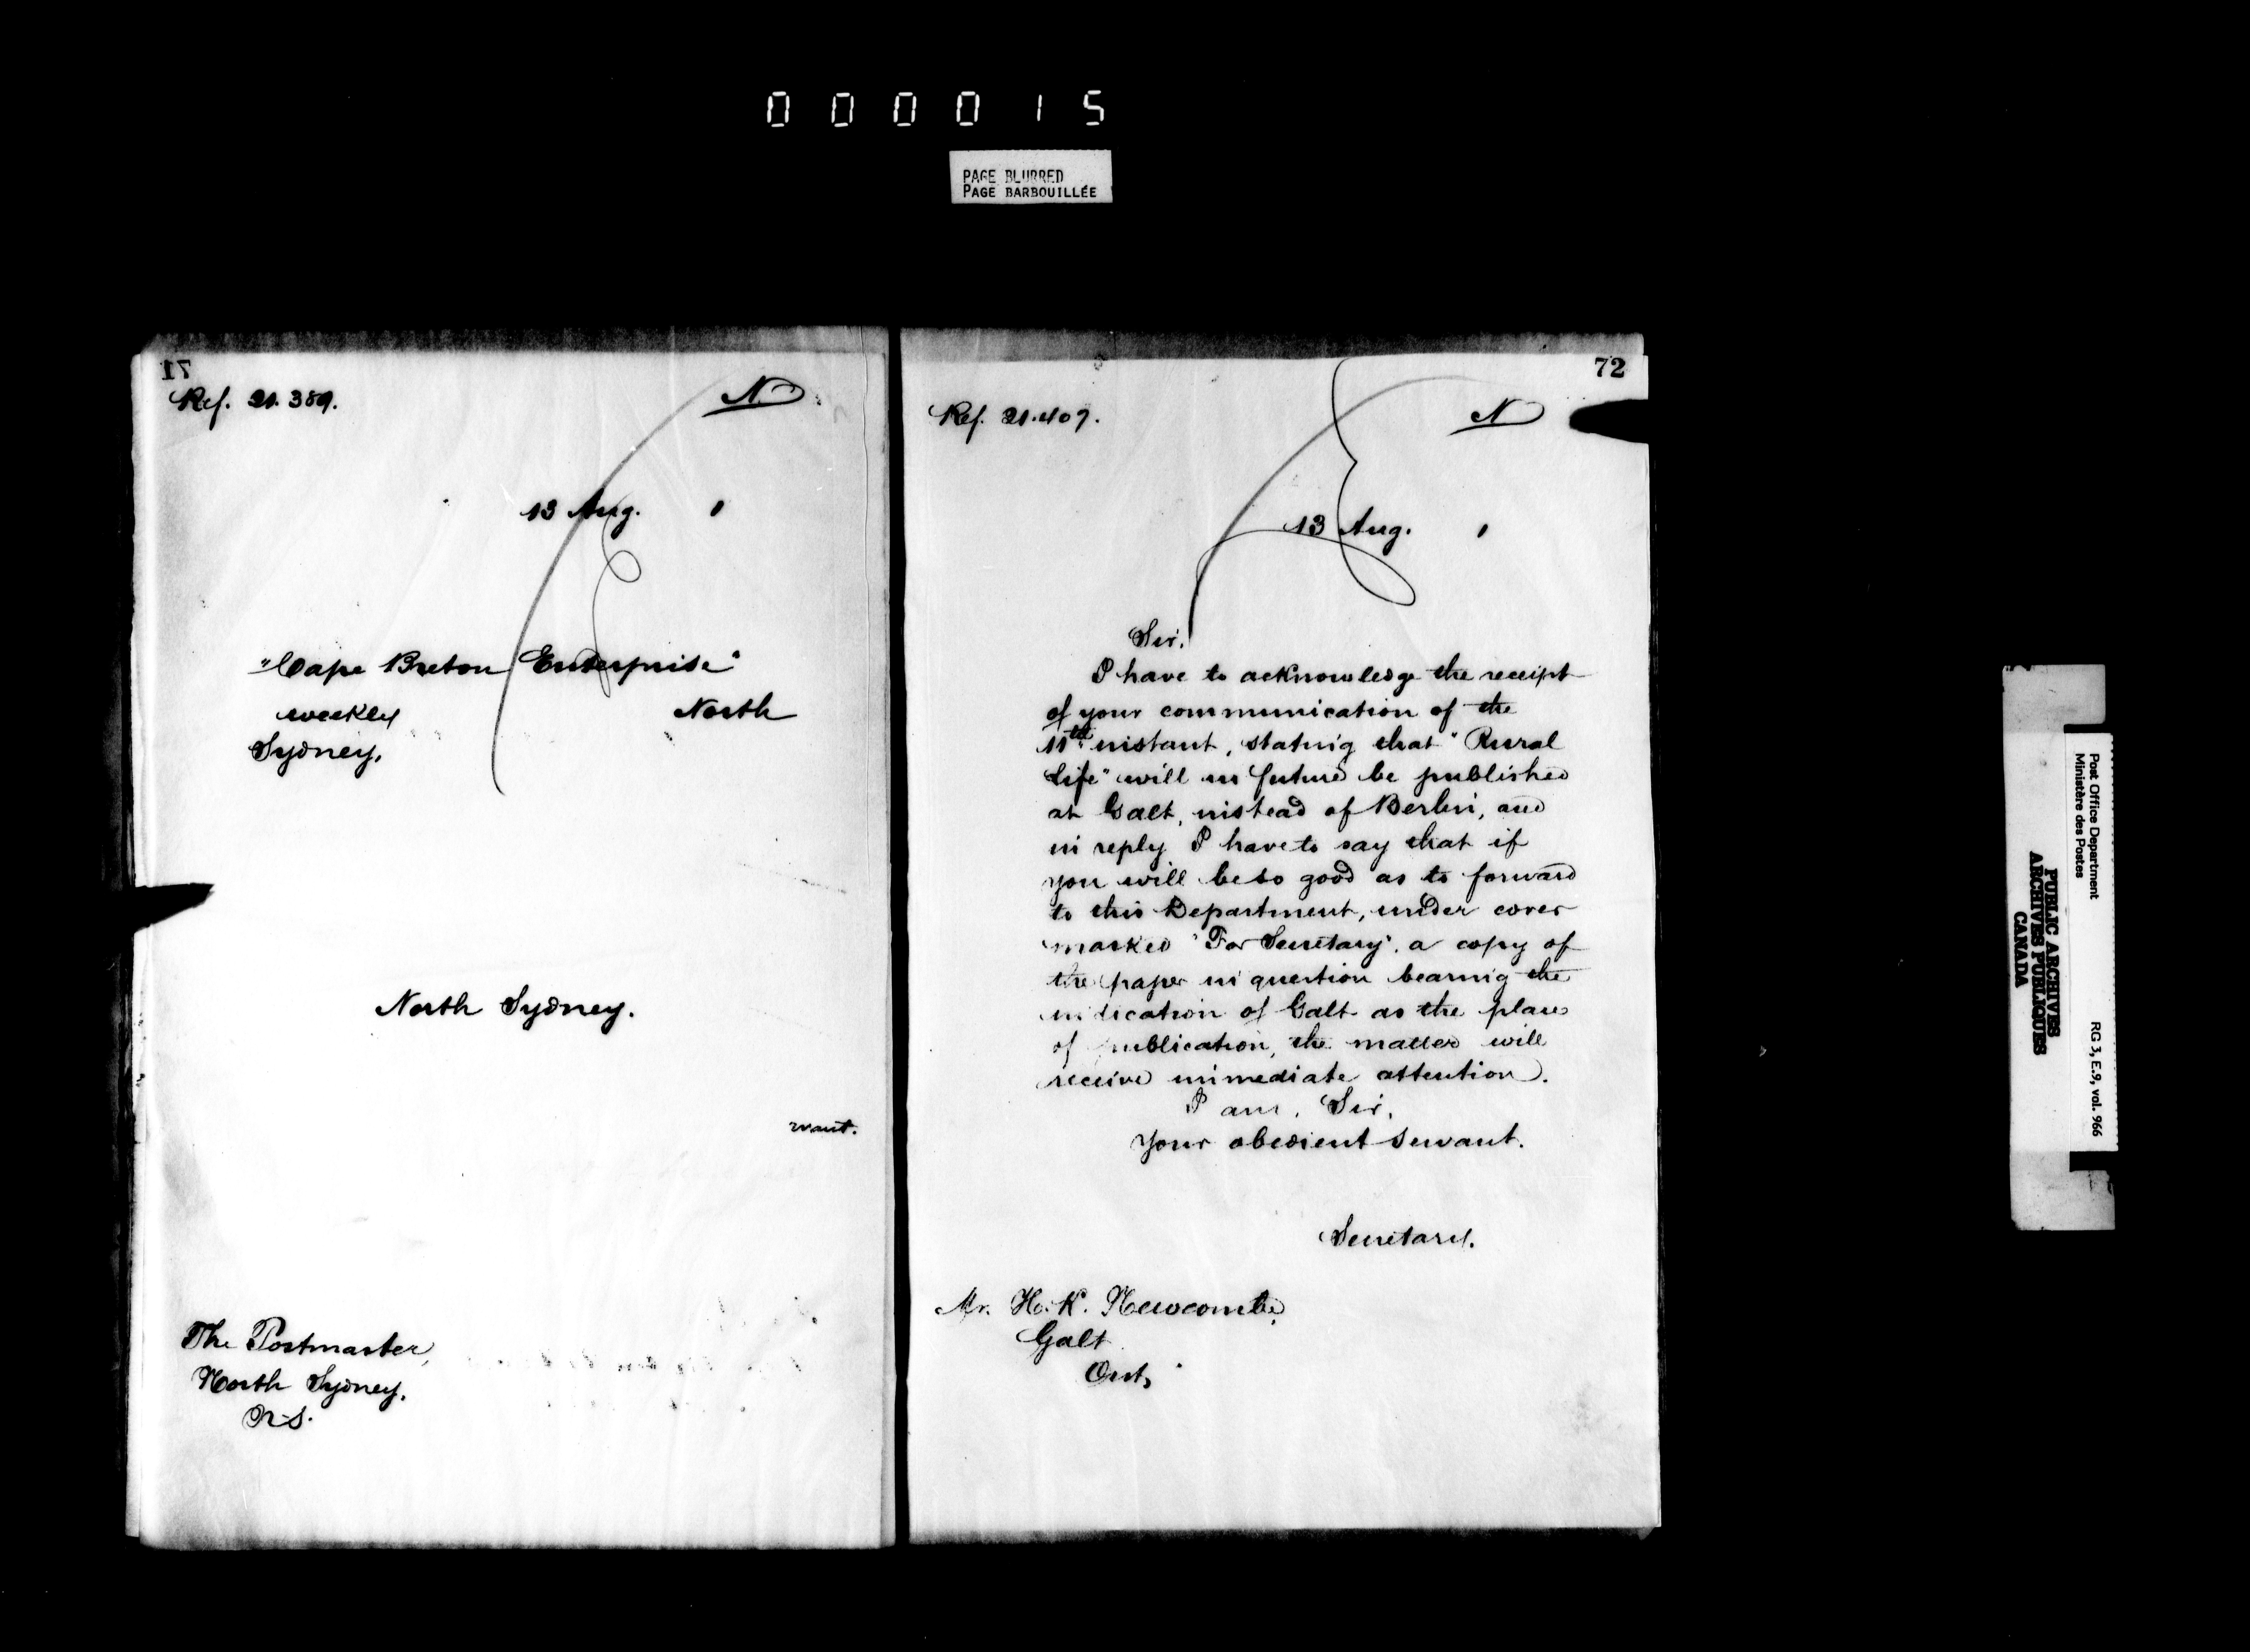 000015
PAGE BLURRED
PAGE BARBOUILLÉE
71
Ref. 21.389.
N
13 Aug. 1
"Cape Breton Enterprise"
weekly North
Sydney,
North Sydney.
rvant.
The Postmaster,
North Sydney,
N.S.
72
Ref. 21.407.
N
13 Aug. 1
Sir,
I have to acknowledge the receipt
of your communication of the
11th instant, stating that "Rural
Life" will in future be published
at Galt, instead of Berlin, and
in reply I have to say that if
you will be so good as to forward
to this Department, under cover
marked "For Secretary", a copy of
the paper in question bearing the
indication of Galt as the place
of publication, the matter will
receive immediate attention.
I am, Sir,
Your obedient servant.
Secretary.
Mr. H. K. Newcombe,
Galt
Ont,
Post Office Department
Ministère des Postes
RG 3, E.9, vol. 966
PUBLIC ARCHIVES
ARCHIVES PUBLIQUES
CANADA